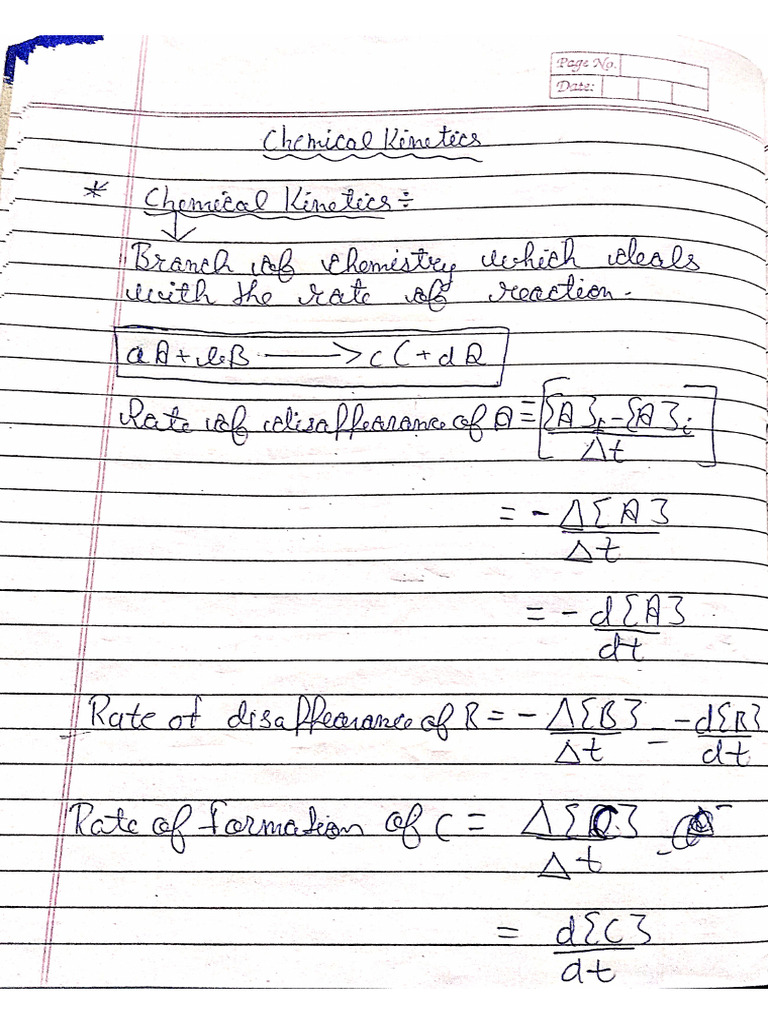 Page No.
Date:
Chemical Kinetics
* Chemical Kinetics ÷
Branch of chemistry which deals
with the rate of reaction.
aA + bB ⟶ cC + dD
Rate of disappearance of A = [{A}f - {A}i / Δt]
= - Δ{A} / Δt
= - d{A} / dt
Rate of disappearance of B = - Δ{B} / Δt = - d{B} / dt
Rate of formation of C = Δ{C} / Δt
= d{C} / dt